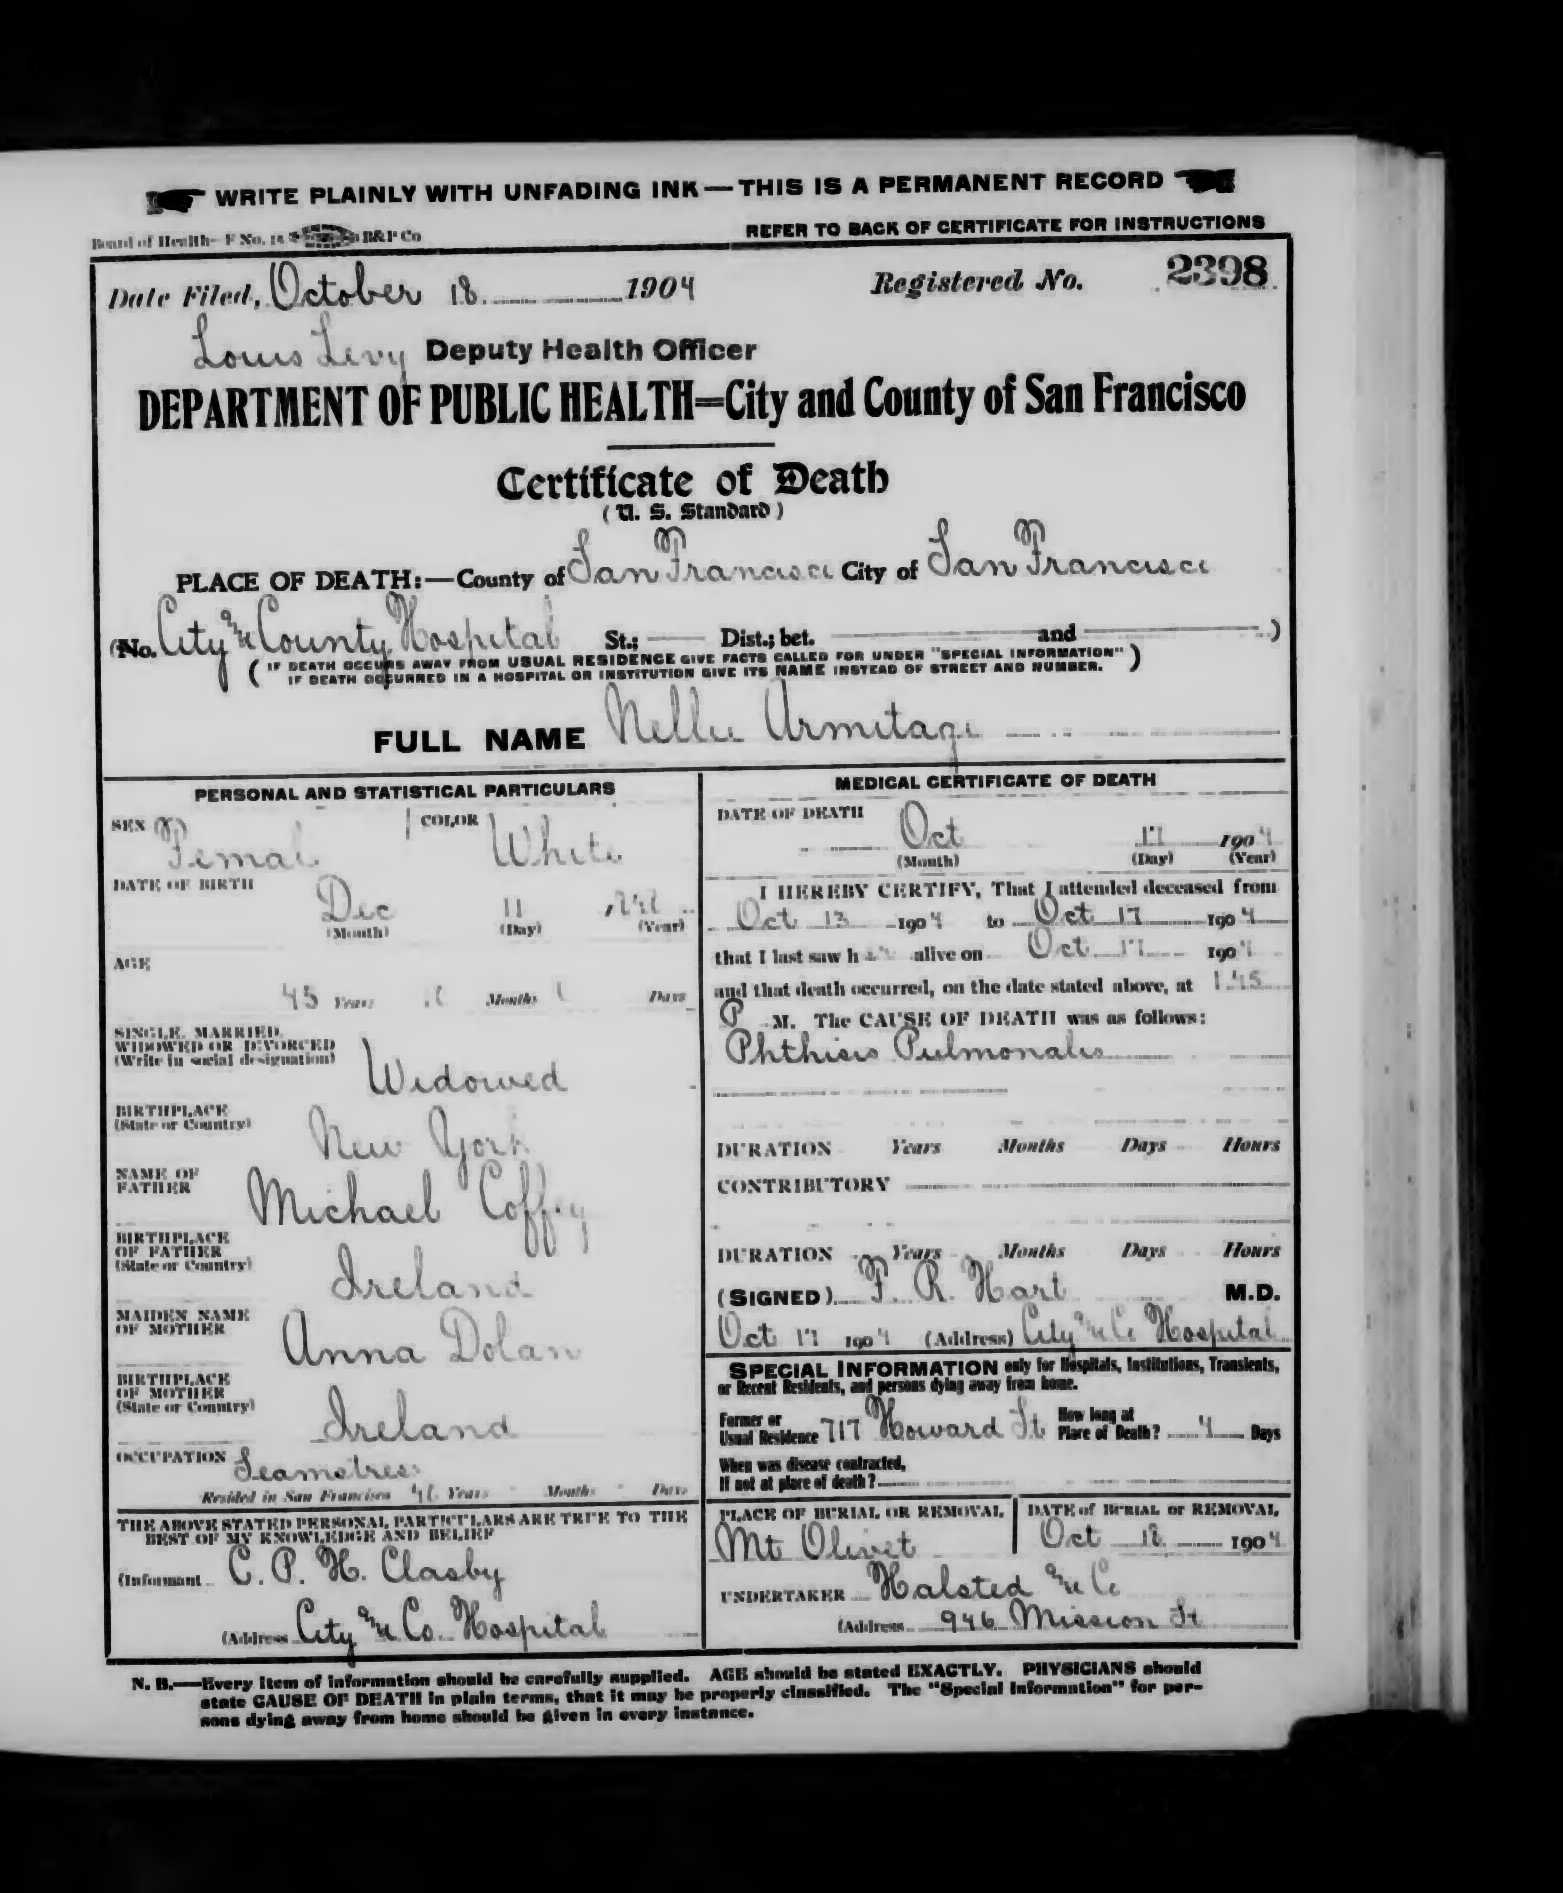 WRITE PLAINLY WITH UNFADING INK—THIS IS A PERMANENT RECORD
Board of Health—F No. B&P Co
REFER TO BACK OF CERTIFICATE FOR INSTRUCTIONS
Date Filed, October 18 1904 Registered No. 2398
Louis Levy Deputy Health Officer
DEPARTMENT OF PUBLIC HEALTH=City and County of San Francisco
Certificate of Death
(U. S. Standard)
PLACE OF DEATH:—County of San Francisco City of San Francisco
(No. City & County Hospital St.; Dist.; bet. and )
( IF DEATH OCCURS AWAY FROM USUAL RESIDENCE GIVE FACTS CALLED FOR UNDER "SPECIAL INFORMATION" )
IF DEATH OCCURRED IN A HOSPITAL OR INSTITUTION GIVE ITS NAME INSTEAD OF STREET AND NUMBER.
FULL NAME Nellie Armitage
PERSONAL AND STATISTICAL PARTICULARS
SEX Female COLOR White
DATE OF BIRTH
Dec 11
(Month) (Day) (Year)
AGE
45 Years Months Days
SINGLE, MARRIED,
WIDOWED OR DIVORCED
(Write in social designation)
Widowed
BIRTHPLACE
(State or Country)
New York
NAME OF
FATHER
Michael Coffey
BIRTHPLACE
OF FATHER
(State or Country)
Ireland
MAIDEN NAME
OF MOTHER
Anna Dolan
BIRTHPLACE
OF MOTHER
(State or Country)
Ireland
OCCUPATION Seamstress
Resided in San Francisco Years Months Days
THE ABOVE STATED PERSONAL PARTICULARS ARE TRUE TO THE
BEST OF MY KNOWLEDGE AND BELIEF
(Informant C. P. H. Clasby
(Address City & Co. Hospital
MEDICAL CERTIFICATE OF DEATH
DATE OF DEATH
Oct 17 1904
(Month) (Day) (Year)
I HEREBY CERTIFY, That I attended deceased from
Oct 13 1904 to Oct 17 1904
that I last saw her alive on Oct 17 1904
and that death occurred, on the date stated above, at 1.45
P M. The CAUSE OF DEATH was as follows:
Phthisis Pulmonalis
DURATION Years Months Days Hours
CONTRIBUTORY
DURATION Years Months Days Hours
(SIGNED) F. R. Hart M.D.
Oct 17 1904 (Address) City & Co Hospital
SPECIAL INFORMATION only for Hospitals, Institutions, Transients,
or Recent Residents, and persons dying away from home.
Former or
Usual Residence 717 Howard St
How long at
Place of Death? 4 Days
When was disease contracted,
If not at place of death?
PLACE OF BURIAL OR REMOVAL
Mt Olivet
DATE of BURIAL or REMOVAL
Oct 18 1904
UNDERTAKER Halsted & Co
(Address 946 Mission St
N. B.—Every item of information should be carefully supplied. AGE should be stated EXACTLY. PHYSICIANS should
state CAUSE OF DEATH in plain terms, that it may be properly classified. The "Special Information" for per-
sons dying away from home should be given in every instance.